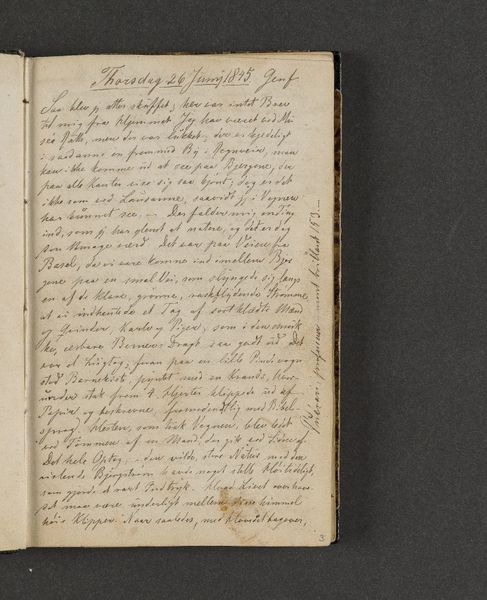 Thorsdag 26 Juny 1845. Genf
Saa blev jeg atter skuffet; her var intet Brev
til mig fra Hjemmet. Jeg har været ved Mu-
sée Rath, men der var lukket; det er kjedeligt
i saadan en fremmed By i Regnveir, man
kan ikke komme ud at see paa Bjergene, der
paa alle Kanter vise sig saa kjønt; dog er det
ikke som ved Lausanne, saavidt jeg i Vognen
har kunnet see. — Der falder mig en Ting
ind, som jeg har glemt at notere, og det er dog
som mange værd. Det var paa Veien fra
Basel, da vi vare komne ind imellem Bjer-
gene paa en smal Vei, som slyngede sig langs
en af de klare, grønne, raskflydende Strømme,
at vi indhentede et Tog af sort klædte Mænd
og Qvinder, Karle og Piger, som i den smuk-
ke, ærbare Berner Dragt saae godt ud. Det
var et Liigtog; foran paa en lille Vogn
stod Barnekiste, pyntet med en Krands, hvor-
under stak frem 4 Hjerter klippede ud af
Papir og beskrevne, formodentlig med Bibel-
sprog. Hesten, som trak Vognen, blev ledet
ved Tømmen af en Mand, der gik ved Siden af.
Det hele Optog — den vilde, store Natur med den
Bjergstrøm havde noget stille Høitideligt,
som gjorde et vart Indtryk. Hvad Livet
dog maa være underligt mellem disse himmel
høie Klipper. Naar saaledes, med Hovedet bagover,
3